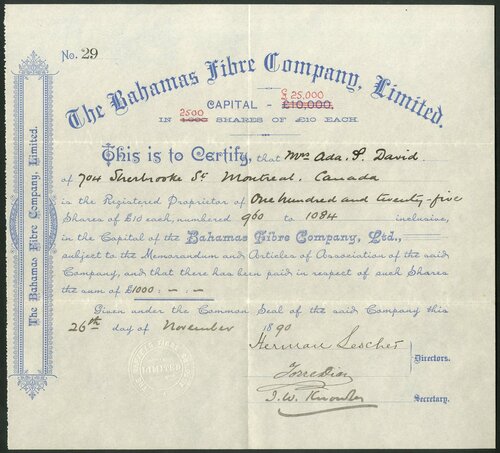 No. 29
The Bahamas Fibre Company, Limited.
£ 25,000
CAPITAL - £10,000,
2500
IN 1,000 SHARES OF £10 EACH
This is to Certify, that Mrs Ada. S. David
of 704 Sherbrooke St Montreal. Canada
is the Registered Proprietor of One hundred and twenty-five
Shares of £10 each, numbered 960 to 1084 inclusive,
in the Capital of the Bahamas Fibre Company, Ltd.,
subject to the Memorandum and Articles of Association of the said
Company, and that there has been paid in respect of such Shares
the sum of £1000 : - : -
Given under the Common Seal of the said Company this
26th day of November 1890
Herman
Directors.
J.W. Knowles
Secretary.
The Bahamas Fibre Company, Limited.
LIMITED